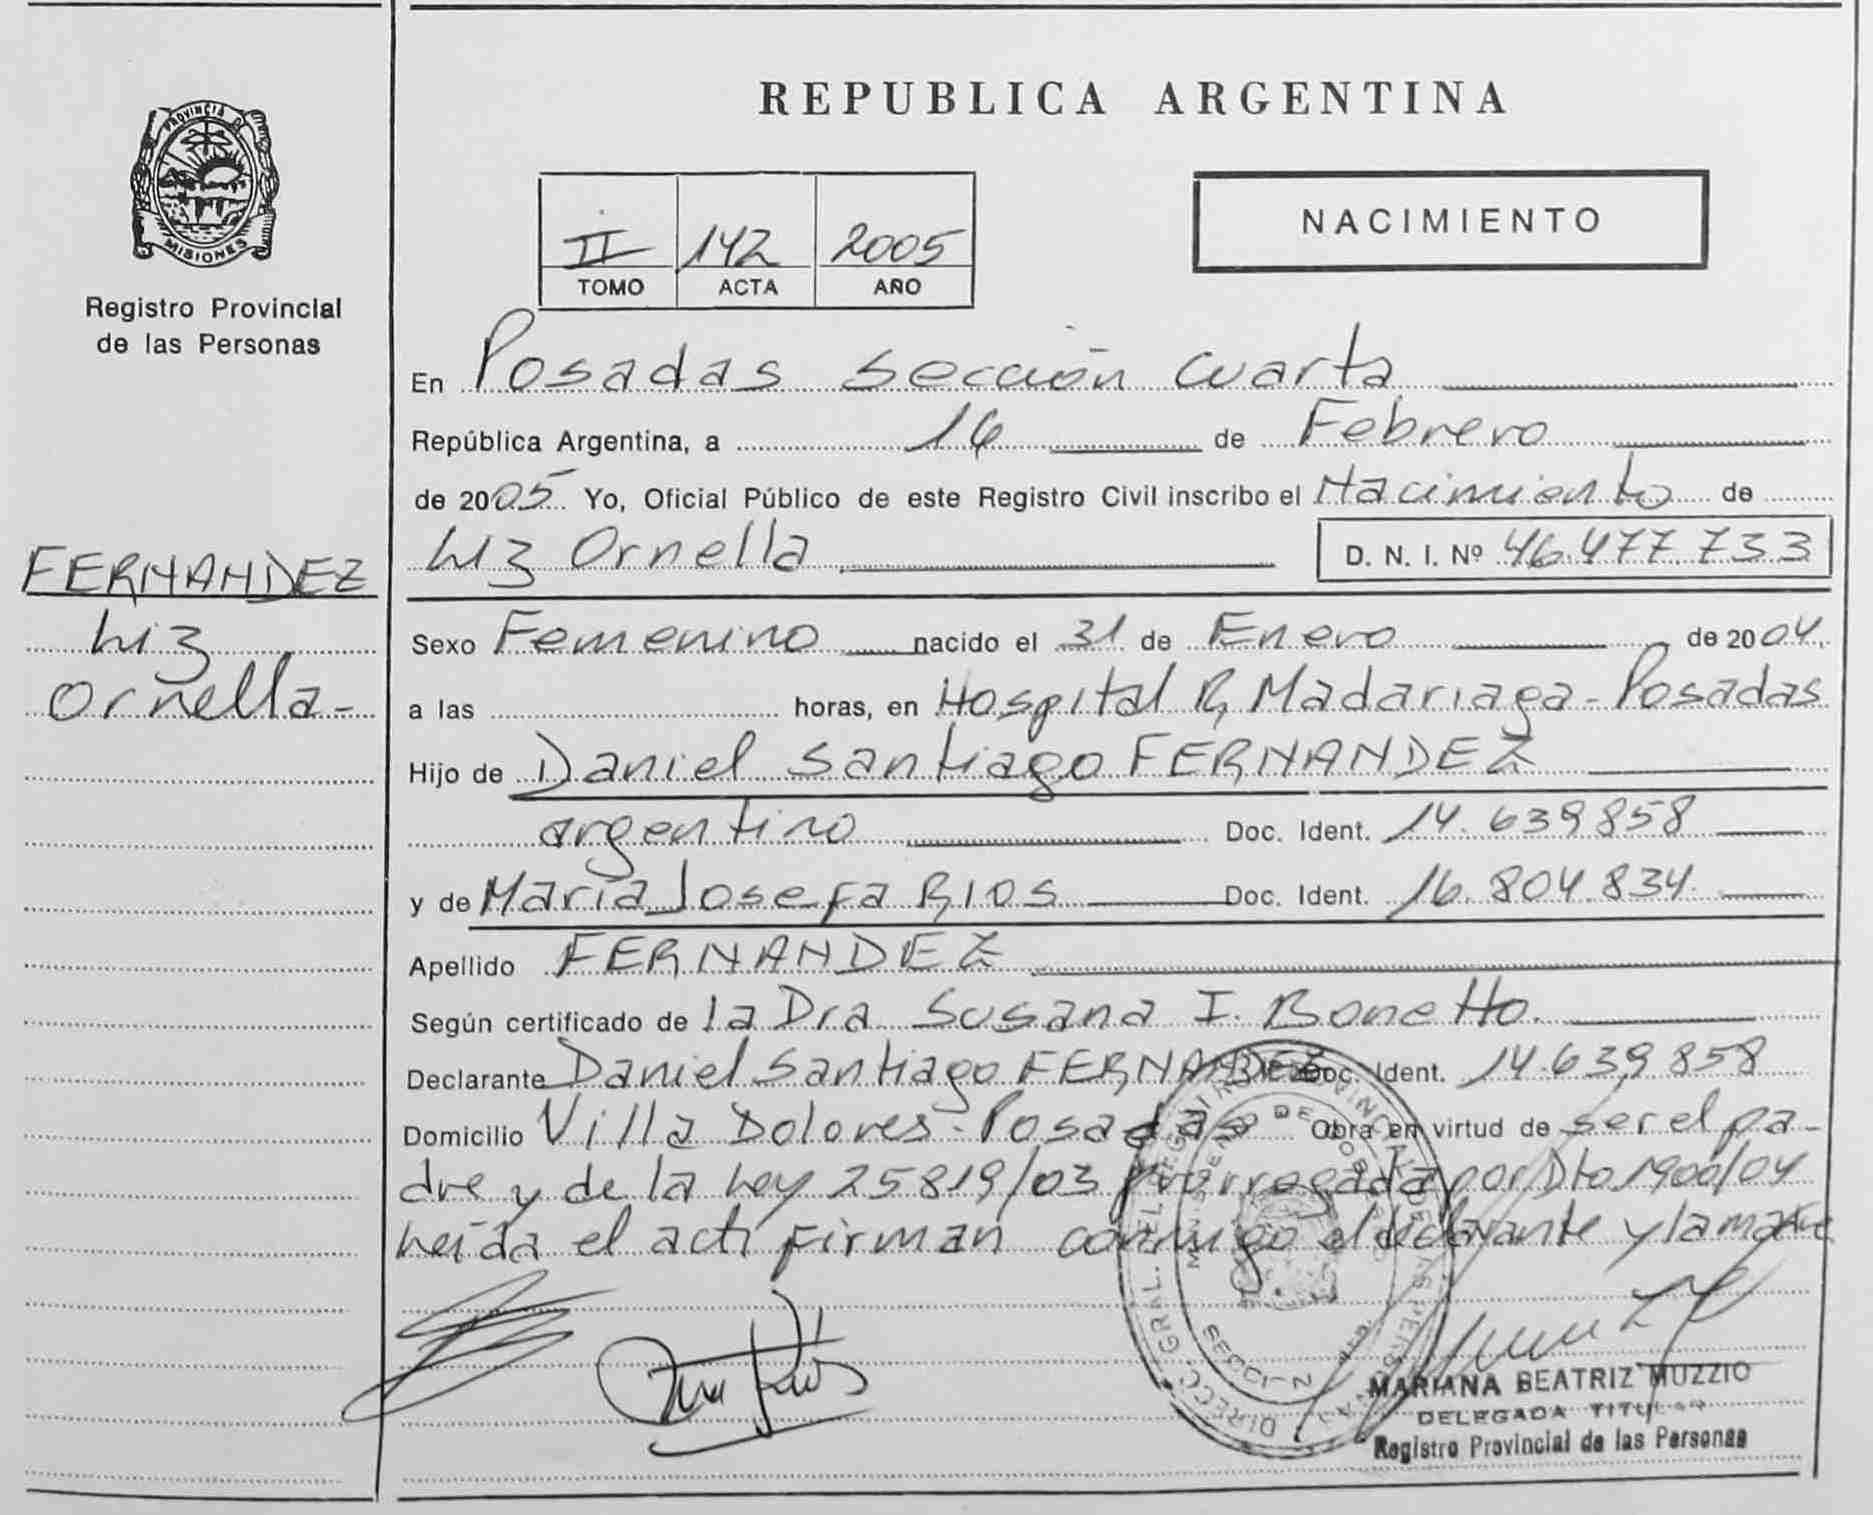 REPUBLICA ARGENTINA
PROVINCIA DE
MISIONES
Registro Provincial
de las Personas
II 142 2005
TOMO ACTA AÑO
NACIMIENTO
En Posadas Sección Cuarta
República Argentina, a 16 de Febrero
de 2005 Yo, Oficial Público de este Registro Civil inscribo el Nacimiento de
Liz Ornella D. N. I. Nº 46.477.733
FERNANDEZ
Liz
Ornella-
Sexo Femenino nacido el 31 de Enero de 2004.
a las horas, en Hospital R, Madariaga - Posadas
Hijo de Daniel Santiago FERNANDEZ
argentino Doc. Ident. 14.639858
y de María Josefa RIOS Doc. Ident. 16.804.834
Apellido FERNANDEZ
Según certificado de la Dra Susana I. Bonetto.
Declarante Daniel Santiago FERNANDEZ Doc. Ident. 14.639858
Domicilio Villa Dolores - Posadas Obra en virtud de ser el pa-
dre y de la Ley 25819/03 Prorrogada por Dto 1900/04
Leída el acta firman conmigo el declarante y la madre
MARIANA BEATRIZ MUZZIO
DELEGADA TITULAR
Registro Provincial de las Personas